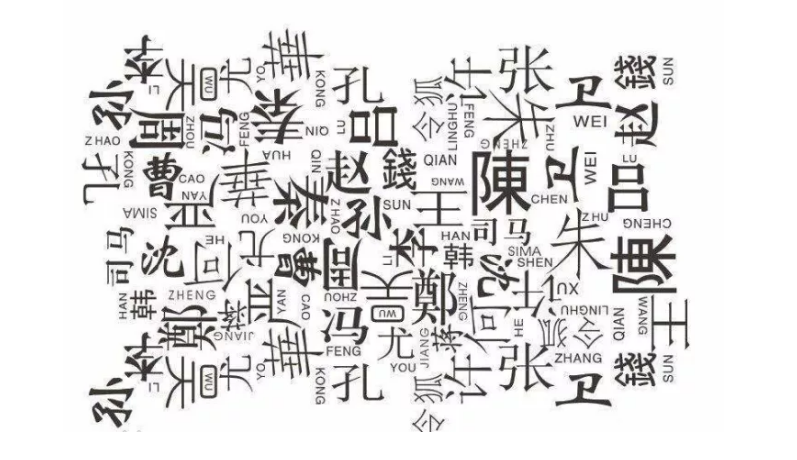 李
LI
吴
WU
尤
YO
華
KONG
孔
令狐
许
张
卫
WEI
錢
SUN
孙
ZHAO
周
ZHOU
何
FENG
秦
QIN
LU
吕
LINGHU
FENG
朱
ZHENG
ZHU
赵
孔
KONG
曹
CAO
YAN
華
HUA
YOU
QIN
秦
赵
ZHAO
錢
QIAN
孙
SUN
WANG
王
陳
CHEN
卫
WEI
吕
LU
CHENG
严
SIMA
司马
沈
何
HE
尤
KONG
曹
周
ZHOU
李
LI
HAN
韩
司马
SIMA
SHEN
沈
朱
ZHU
陳
HAN
韩
ZHENG
鄭
蒋
JIANG
严
YAN
CAO
冯
FENG
吴
WU
鄭
ZHENG
何
HE
许
XU
LINGHU
令狐
QIAN
WANG
王
李
LI
吴
WU
尤
YO
華
KONG
孔
尤
YOU
JIANG
蒋
令狐
许
张
ZHANG
卫
錢
SUN
孙